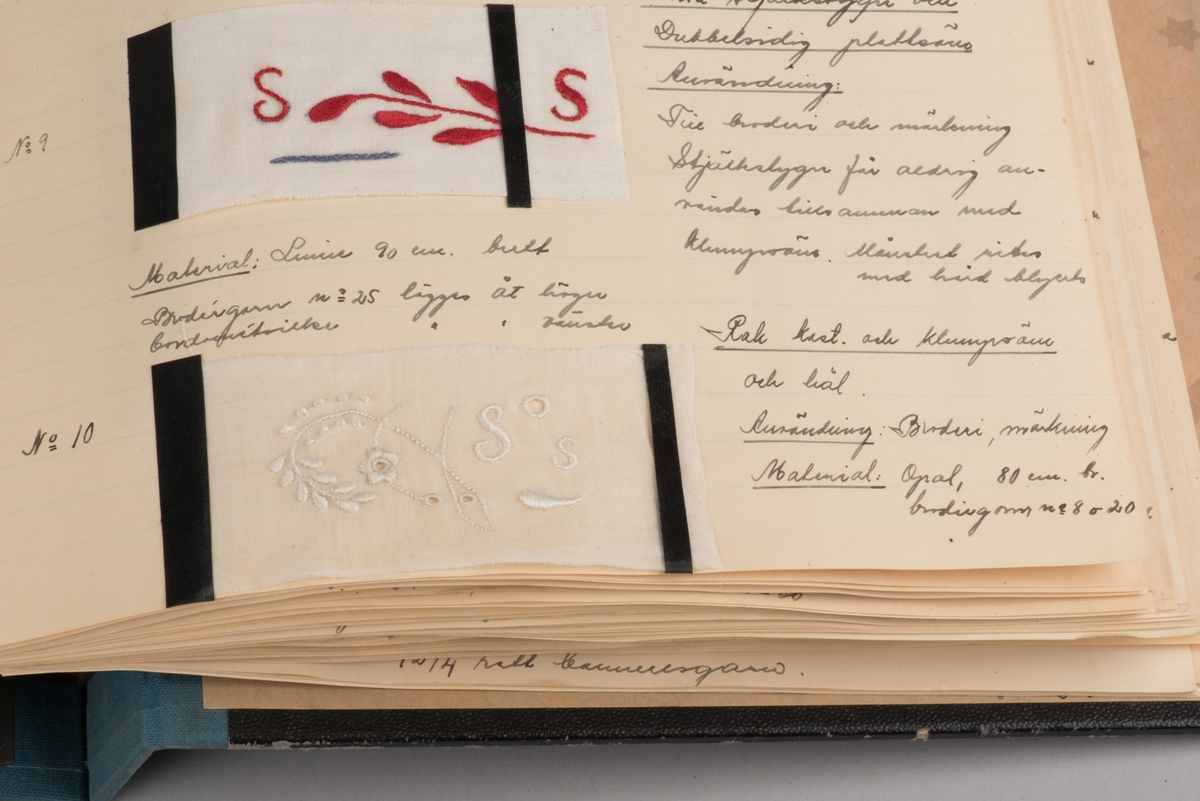 Stjälkstygn och
Dubbelsidig plattsöm
Användning:
Till broderi och märkning
Stjälkstygn får aldrig an-
vändas tillsamman med
klumpsöm. Mönstret ritas
med hård blyerts
No 9
S S
Material: Linne 90 cm. brett
Brodérgarn no 25 lägges åt höger
" " vänster
No 10
S S
Rak kast. och klumpsöm
och hål.
Användning: Broderi, märkning
Material: Opal, 80 cm. br.
brodergarn no 8 o 20.
rött